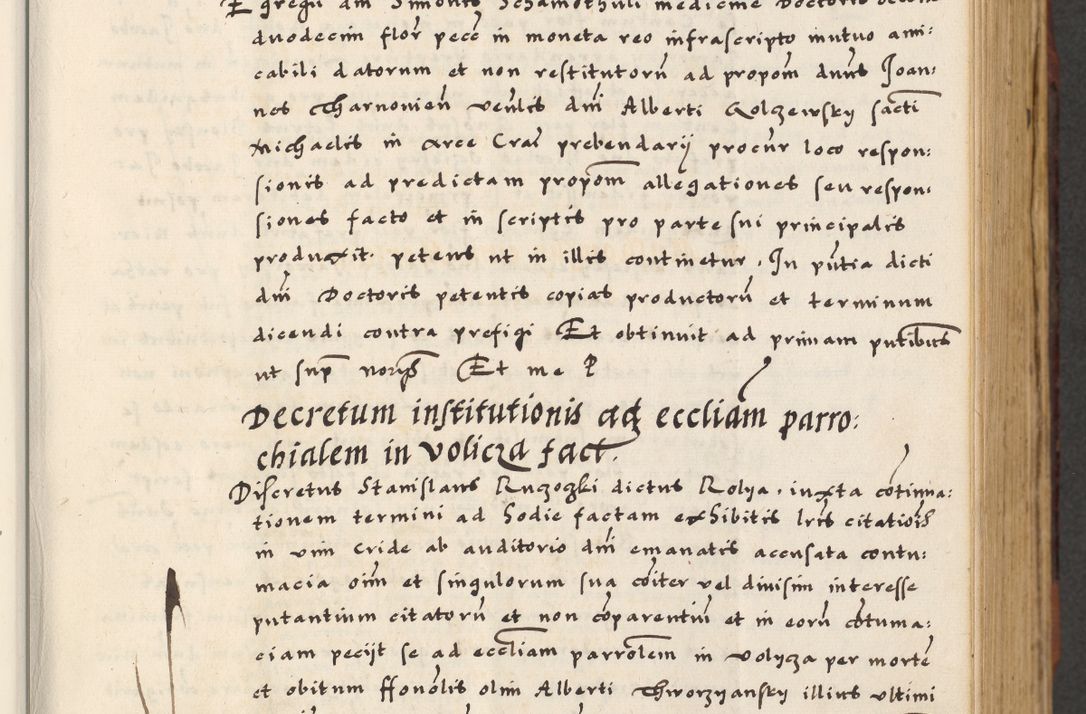 Egregii dm̃ Simonis Schamothuli medicine Doctoris
duodecim flor̃ pecc̃ in moneta reo infrascripto mutuo ami:
cabili datorum et non restitutorũ ad proposm̃ dnus Joan:
nes Tharnovien̄ venl̃is dñi Alberti Golczewsky sancti
Michaelis in arce Crac̃ prebendarij procur̃ loco respon:
sionis ad predictam propom̃ allegationes seu respon:
siones facto et in scriptis pro parte sui principalis
produxit. petens ut in illis continetur. In pñtia dicti
dñi Doctoris petentis copias productorũ et terminum
dicendi contra prefigi Et obtinuit ad primam putibus
ut sup̃ noris Et me P
Decretum institutionis ad eccliam̃ parro:
chialem in Volicza fact.
Discretus Stanislaus Ruczoczki dictus Rolya. iuxta cõtinua:
tionem termini ad hodie factam exhibitis lr̃is citatiõis
in vim Cride ab auditorio dñi emanatis accusata contu:
macia oim̃ et singulorum sua cõiter vel divisim interesse
putantium citatorũ et non cõparentiũ et in eorũ cõtuma:
ciam pecijt se ad eccl̃iam parrol̃em in volycza per mortẽ
et obitum Honol̃is olim Alberti Thworzyansky illius ultimi